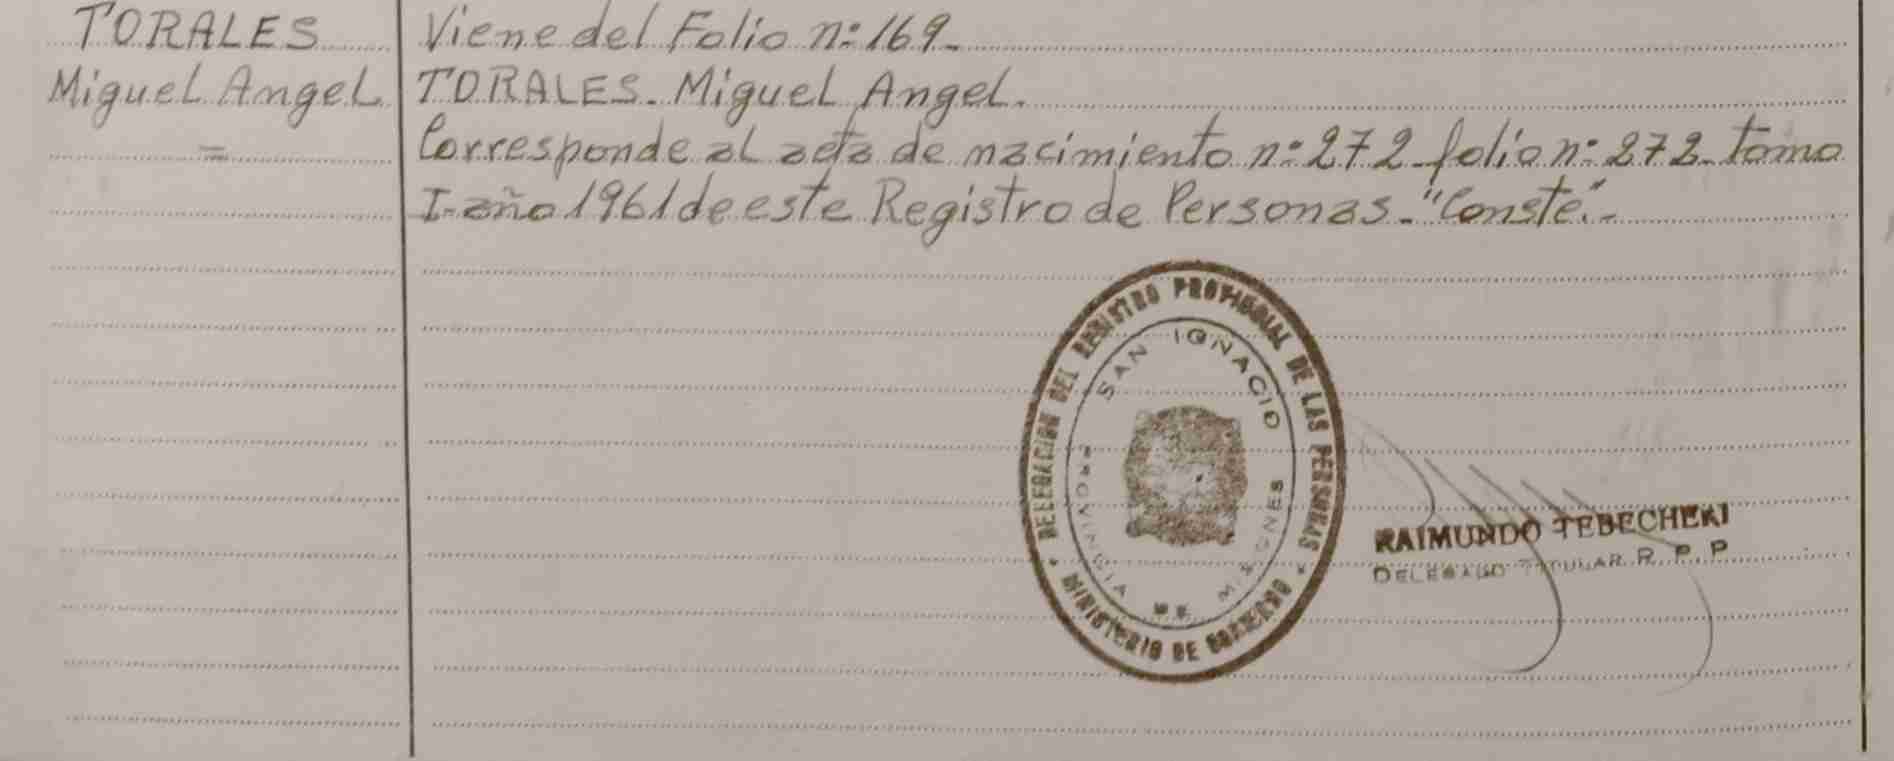 TORALES
Miguel Angel
=
Viene del Folio n: 169-
TORALES- Miguel Angel.
Corresponde al acta de nacimiento n: 272- folio n: 272- tomo
I- año 1961 de este Registro de Personas-"Conste".-
DELEGACION DEL REGISTRO PROVINCIAL DE LAS PERSONAS
* MINISTERIO DE GOBIERNO *
SAN IGNACIO
PROVINCIA DE MISIONES
RAIMUNDO TEBECHERI
DELEGADO TITULAR R. P. P